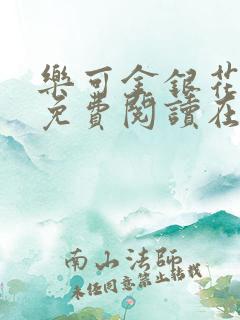 樂可金銀花
免費閱讀在
南山法師
未經同意禁止轉載